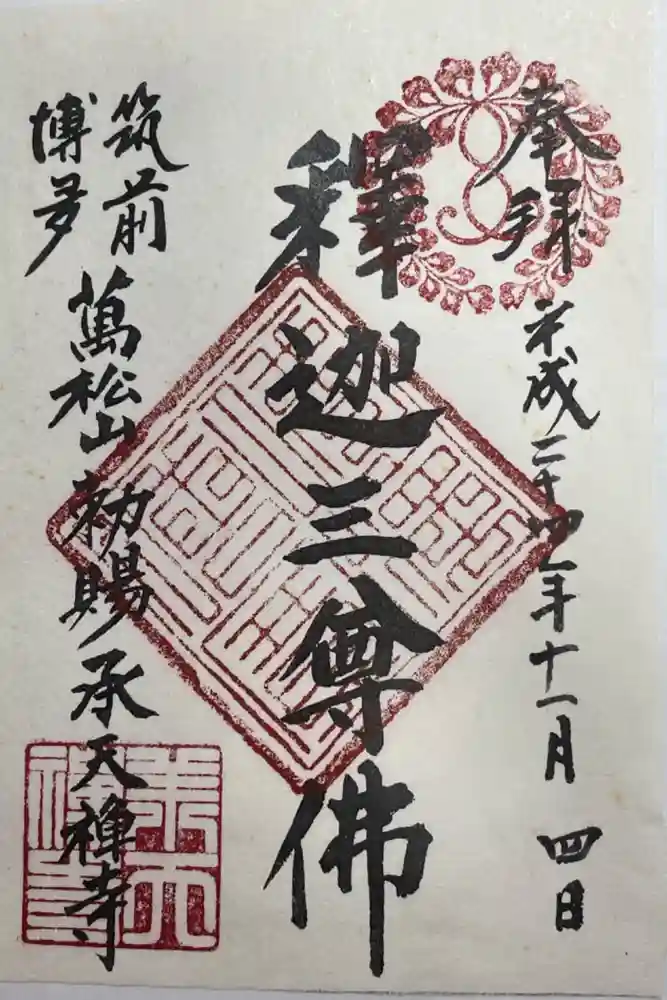 奉拝
平成二十四年十一月四日
釋迦三尊佛
筑前
博多
萬松山勅賜承天禅寺